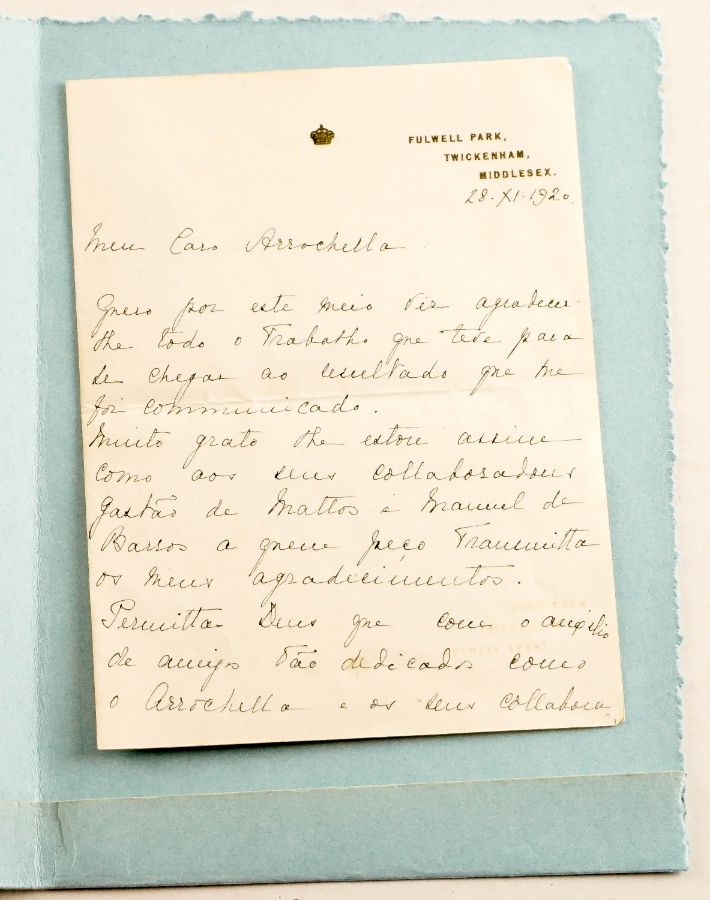 FULWELL PARK,
TWICKENHAM,
MIDDLESEX.
28.XI.1920.
Meu Caro Arrochella
Quero por este meio vez agradecer
lhe todo o Trabalho que teve para
se chegar ao resultado que me
foi communicado.
Muito grato lhe estou assim
como aos seus collaboradores
Gastão de Mattos e Manuel de
Barros a quem peço Transmitta
os meus agradecimentos.
Permitta Deus que com o auxilio
de amigos tão dedicados como
o Arrochella e os seus collabora